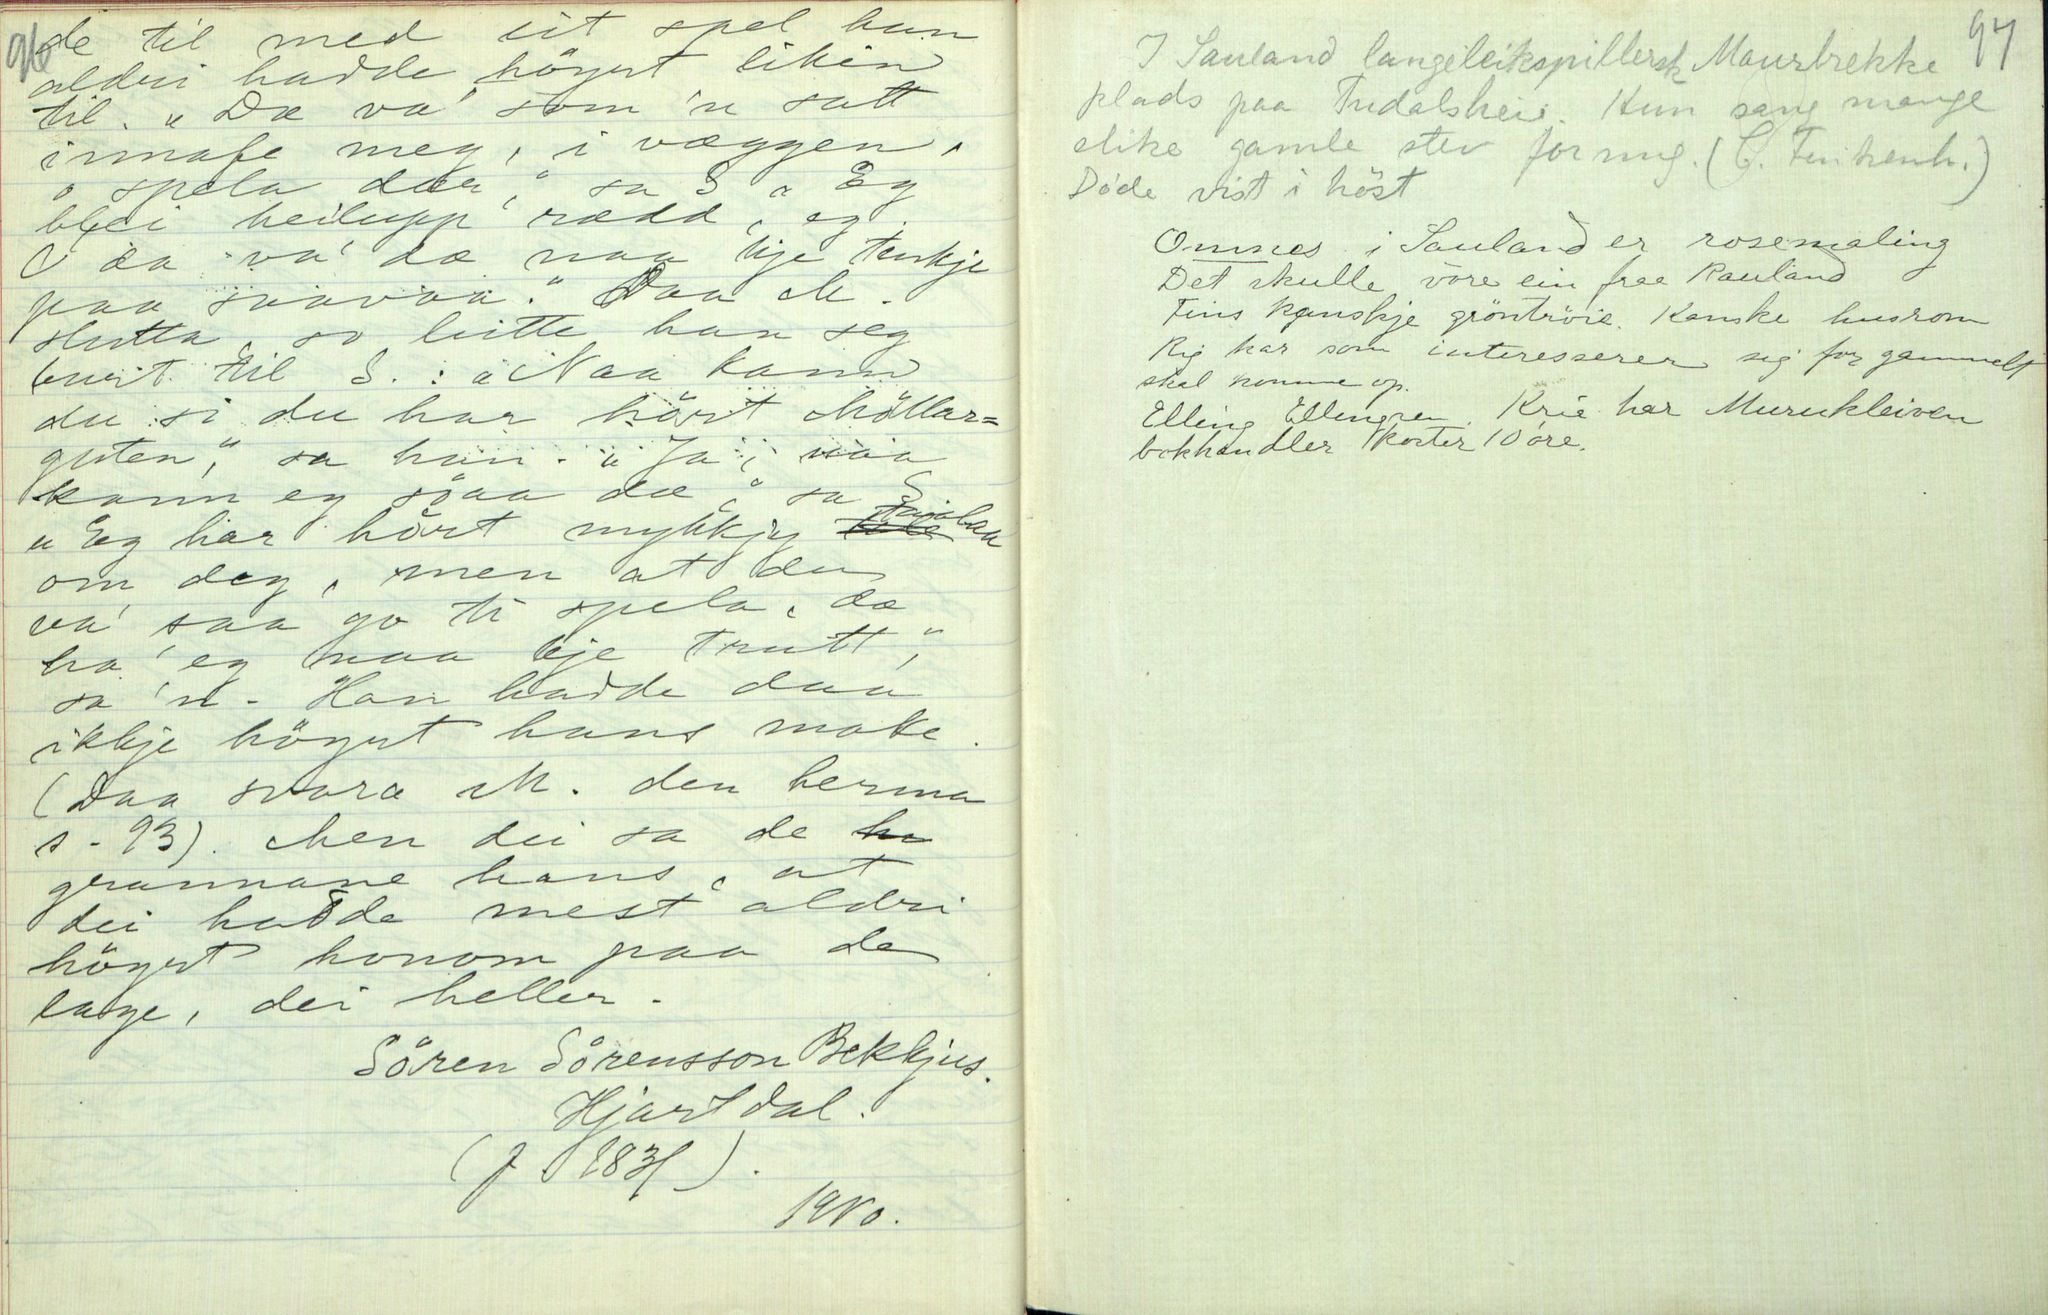 96
de til med eit spel han
aldri hadde höyrt likin
til. "Dæ va' som 'n satt
innafe meg, i væggen,
o spela der," sa S. "Eg
blei heilupp rædd, eg.
O da va' dæ naa kje tenkje
paa saavaa." Daa M.
slutta, so leitte han seg
burt til S.: "Naa kann
du si du har hört Möllar=
guten," sa han. "Ja, naa
kann eg söaa dæ," sa S.
"Eg har hört mykkjy
om deg, men at du
va' saa go ti spela, dæ
ha' eg naa kje trutt,"
sa 'n. Han hadde daa
ikkje höyrt hans make.
(Daa svara M. den herma
s. 93). Men dei sa de ha
grannane hans, at
dei hadde mest aldri
höyrt honom paa de
laget, dei heller.
Sören Sörensson Bekkjus.
Hjartdal.
(f. 183)
1910.
97
I Sauland langeleikspillersk Maurbrekke
plads paa Tudalsheie. Hun sang mange
slike gamle stev for mig. (C. Finkenh.)
Døde vist i høst
Omnes i Sauland er rosemaling
Det skulle vöre ein frae Rauland
Fins kanskje gröntröie. Kanske husrom
Rig kar som interesserer sig for gammelt
skal komme op.
Elling Ellingsen Krie har Murukleiven
bokhandler koster 10 öre.